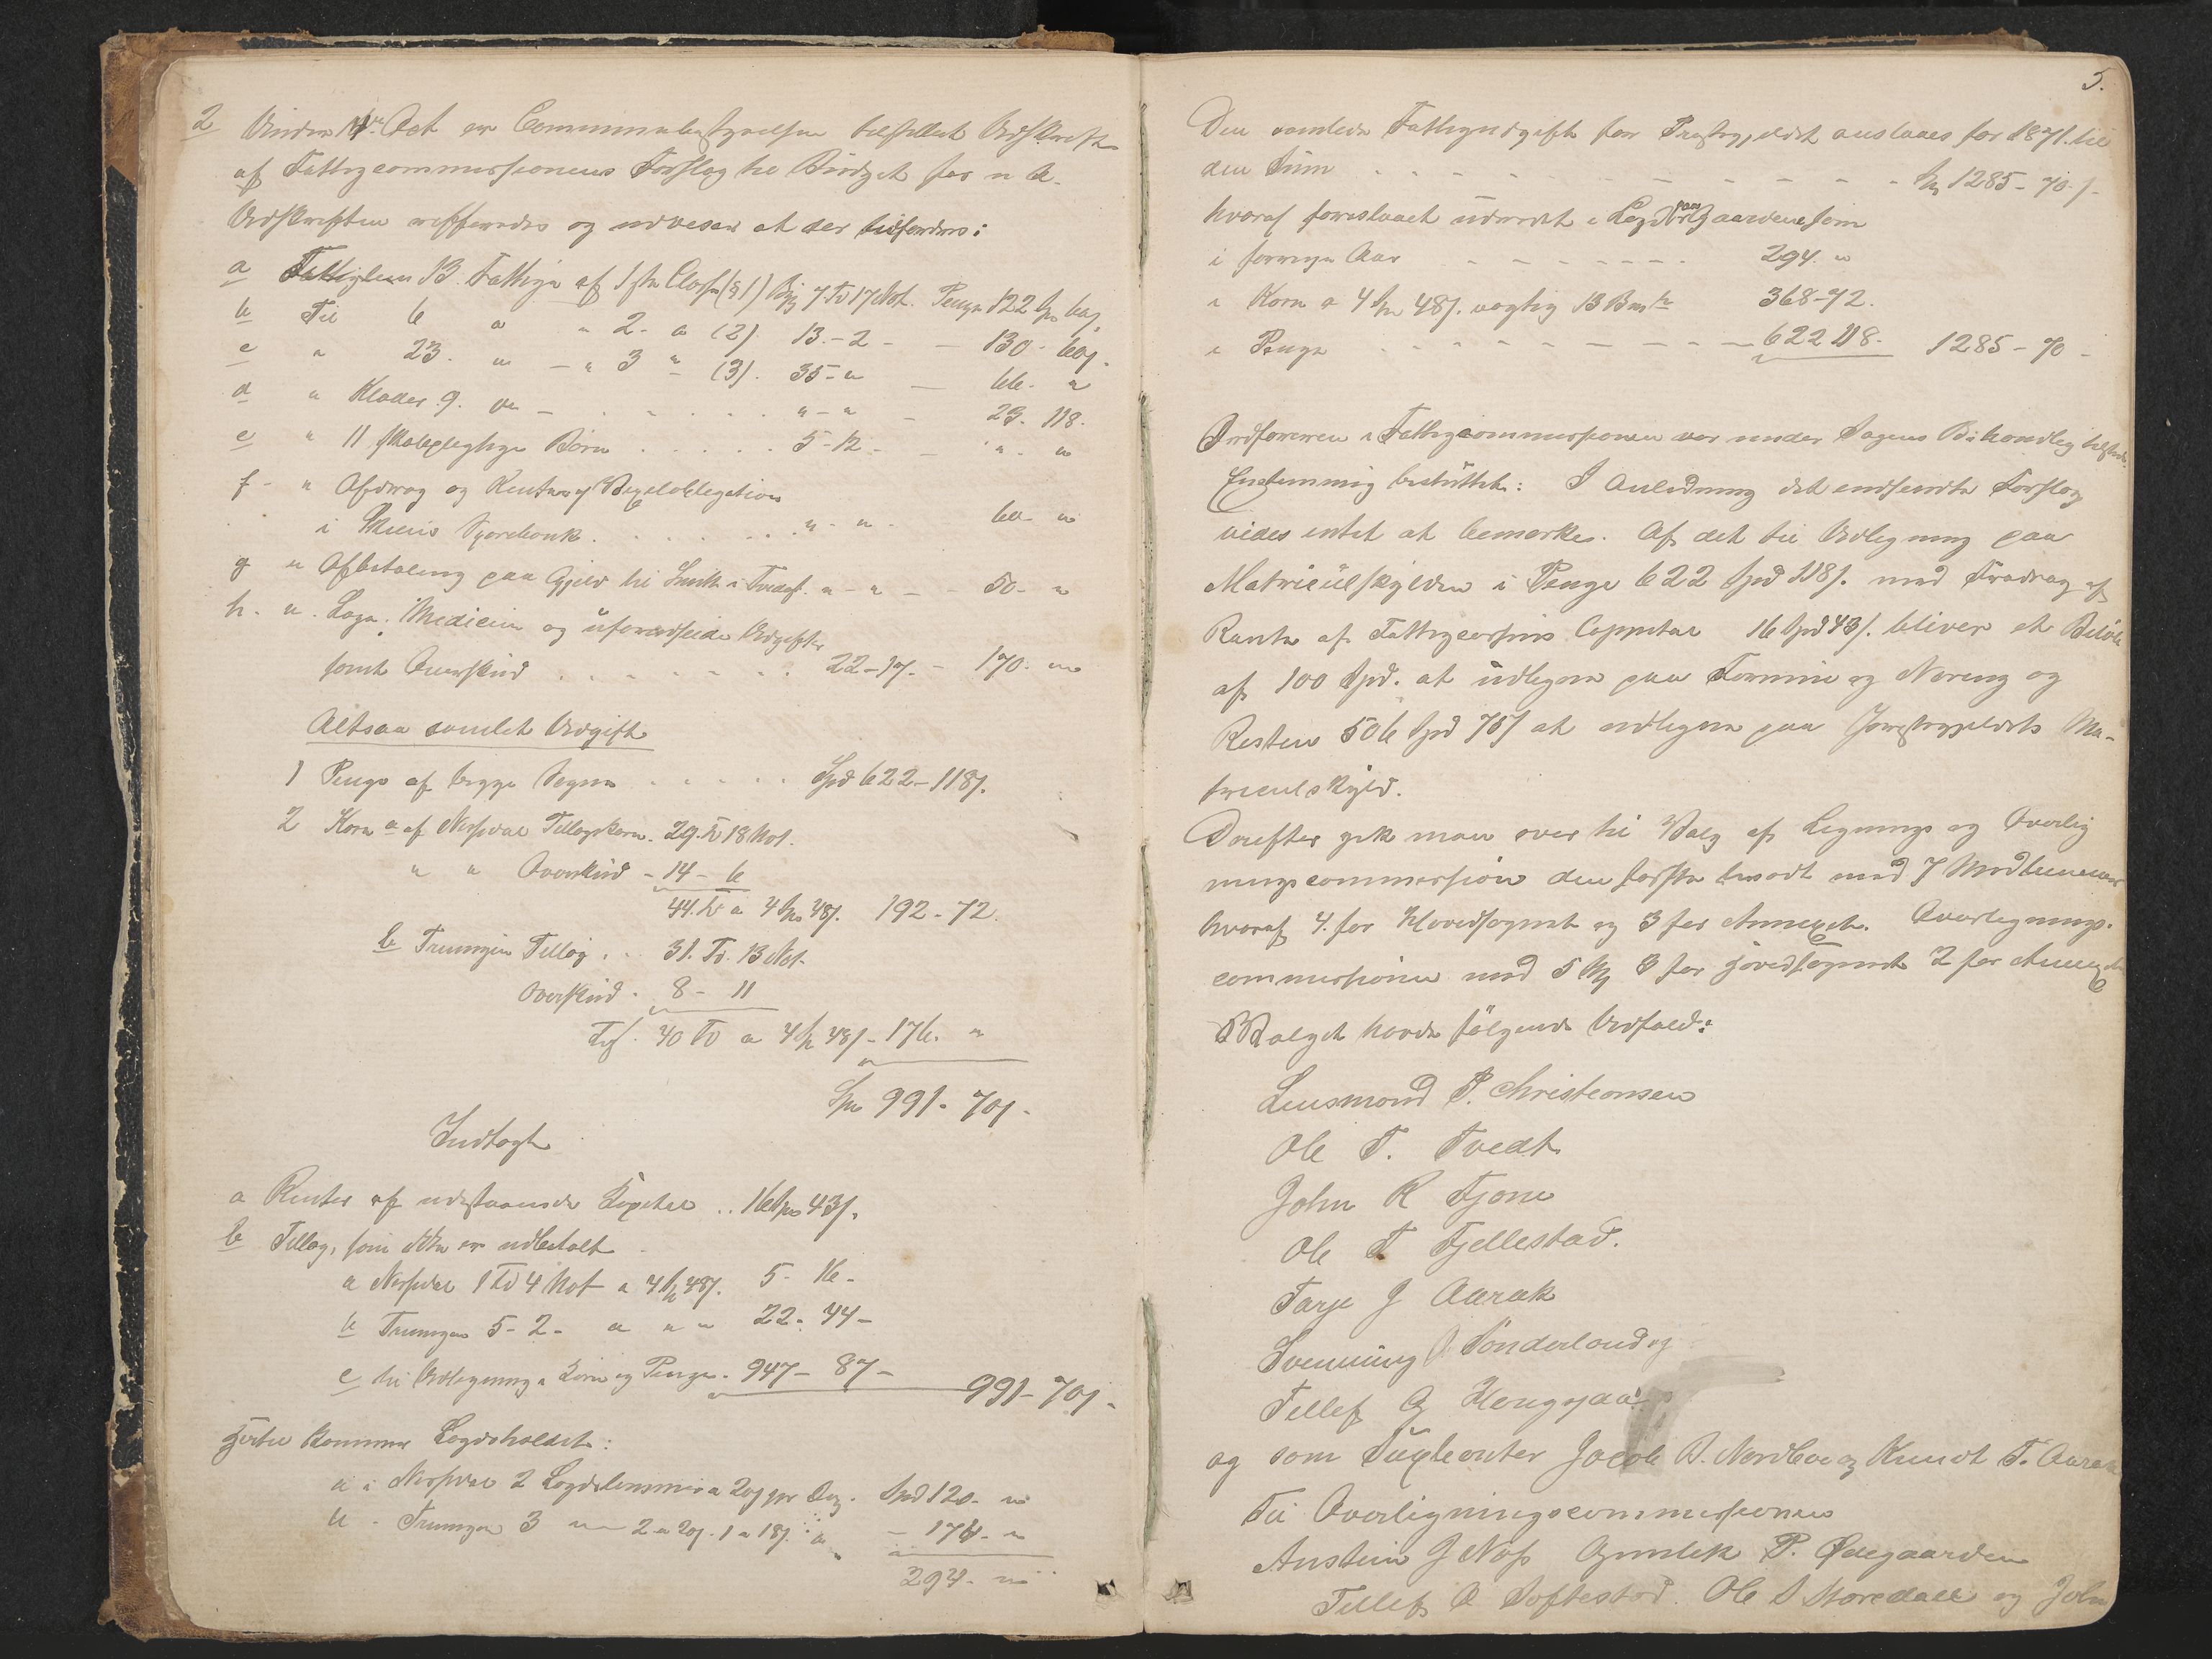 2 Under 14de Oct er Communebestyrelsen tilstillet Udskrift
af Fattigcommissionens Forslag til Budget for n. A.
Udskriften refferedes og udveser at der tilfordres:
a Fattiglem 13 Fattige af 1ste Classe (§1) Byg 7 Td 17 Kot. Penge 122 Sp 60 s
b Til 6 " " 2- " (2) 13.-2 - - 130- 60 s
c " 23. " - " 3 " (3). 35-" - 66. "
d " Klæder 9. " - . . . . " - " - 23. 118.
e " 11 skolepligtige Børn . . . . . 5-12 - - " - "
f - " Afdrag og Renter af Vexelobligation
i Skiens Sparebank . . . . . . " - " - 60 "
g " Afbetaling paa Gjeld til Smith i Tvedest. " - " - - 50- "
h. ". Læge, Medicin og uforudseede Udgifter
samt Overskud . . . . . . . 22-17. - 170. "
Altsaa samlet Udgift
1 Penge af begge Sogne . . . . . Spd 622-118 s.
2 Korn a af Nissedal Tillægskorn. 29. Td 18 Kot.
" " Overskud - 14 - 6
44. Td a 4 Sp 48 s. 192-72.
b Treungen Tillæg . . 31. Td. 13 Kot.
Overskud . 8 - 11
Tils. 40 Td a 4 Sp 48 s - 176. "
Spd 991- 70 s -
Indtægt
a Renter af udestaaende Kapital .. 16 Spd 43 s.
b Tillæg, som ikke er udbetalt
a Nissedal 1 Td 4 Kot a 4 Sp 48 s. 5- 16 -
b Treungen 5-2- a " " 22- 44 -
c til Udligning i Korn og Penge. 947- 87 -
991- 70 s -
Hertil kommer Lægdsholdet:
a i Nissedal 2 Lægdslemmer a 20 s pr Dag. Spd 120- "
b - Treungen 3 " 2 a 20 s. 1 a 18 s. " " - 174- "
294- "
5.
Den samlede Fattigudgift for Præstegjeldet anslaaes for 1871 til
den Sum . . . . . - - - - - - - Sp 1285- 70 s -
hvoraf foreslaaet udredet i Lægd paa Gaardene som
i forrige Aar - - - - - - - - 294. "
i Korn a 4 Sp 48 s. vægtig 13 Bmk 368-72.
i Penge - - - - - - - - - 622 118. 1285 - 70 -
Ordføreren i Fattigcommissionen var under Sagens Behandling tilstede.
Enstemmig besluttet: I Anledning det indsendte Forslag
vides intet at bemærke. Af det til Udligning paa
Matriculskylden i Penge 622 Spd 118 s. med Fradrag af
Rente af Fattigcassens Cappital 16 Spd 43 s. bliver et Beløb
af 100 Spd. at udligne paa Formue og Næring og
Resten 506 Spd 75 s at udligne paa Præstegjeldets Ma-
triculskyld.
Derefter gik man over til Valg af Lignings og Overlig
ningscommission den første besadt med 7 Medlemmer
hvoraf 4. for Hovedsognet og 3 for Annexet. Overlignings-
commissionen med 5 og 3 for Hovedsognet 2 for Annexet
Valget havde følgende Udfald:
Lensmand P. Christensen
Ole T. Tvedt
John K Fjone
Ole T Fjellestad.
Tarje J Aarak
Svenning Sønderland og
Tellef O Haugsjaa
og som Supleanter Jacob B. Nordbø og Knudt T. Aarak
Til Overligningscommissionen
Austein J Næs Gunlek P. Ødegaarden
Tellef O Toftestad. Ole S Moredall og John